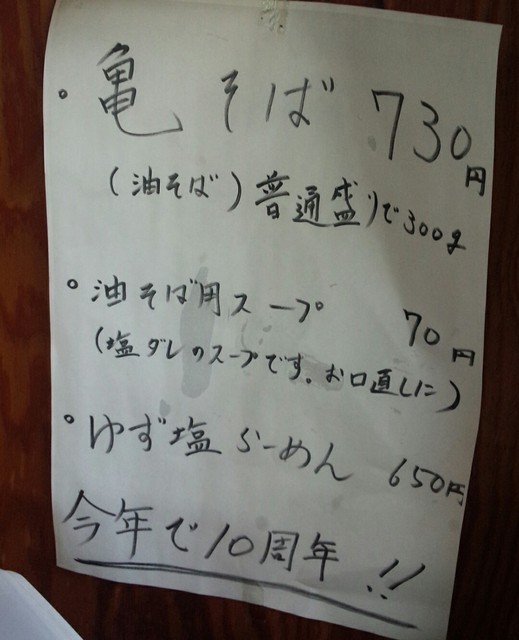 。亀そば 730円
(油そば) 普通盛りで300g
。油そば用スープ 70円
(塩ダレのスープです。お口直しに)
。ゆず塩らーめん 650円
今年で10周年!!